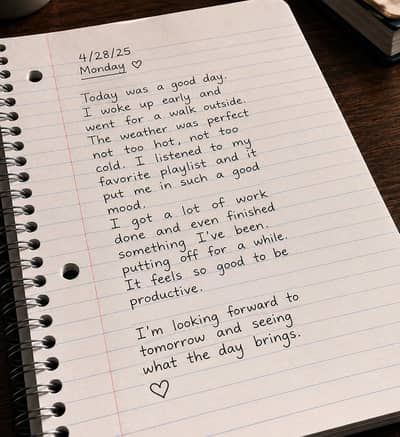 4/28/25
Monday ♡
Today was a good day.
I woke up early and
went for a walk outside.
The weather was perfect
not too hot, not too
cold. I listened to my
favorite playlist and it
put me in such a good
mood.
I got a lot of work
done and even finished
something I've been.
putting off for a while.
It feels so good to be
productive.
I'm looking forward to
tomorrow and seeing
what the day brings.
♡